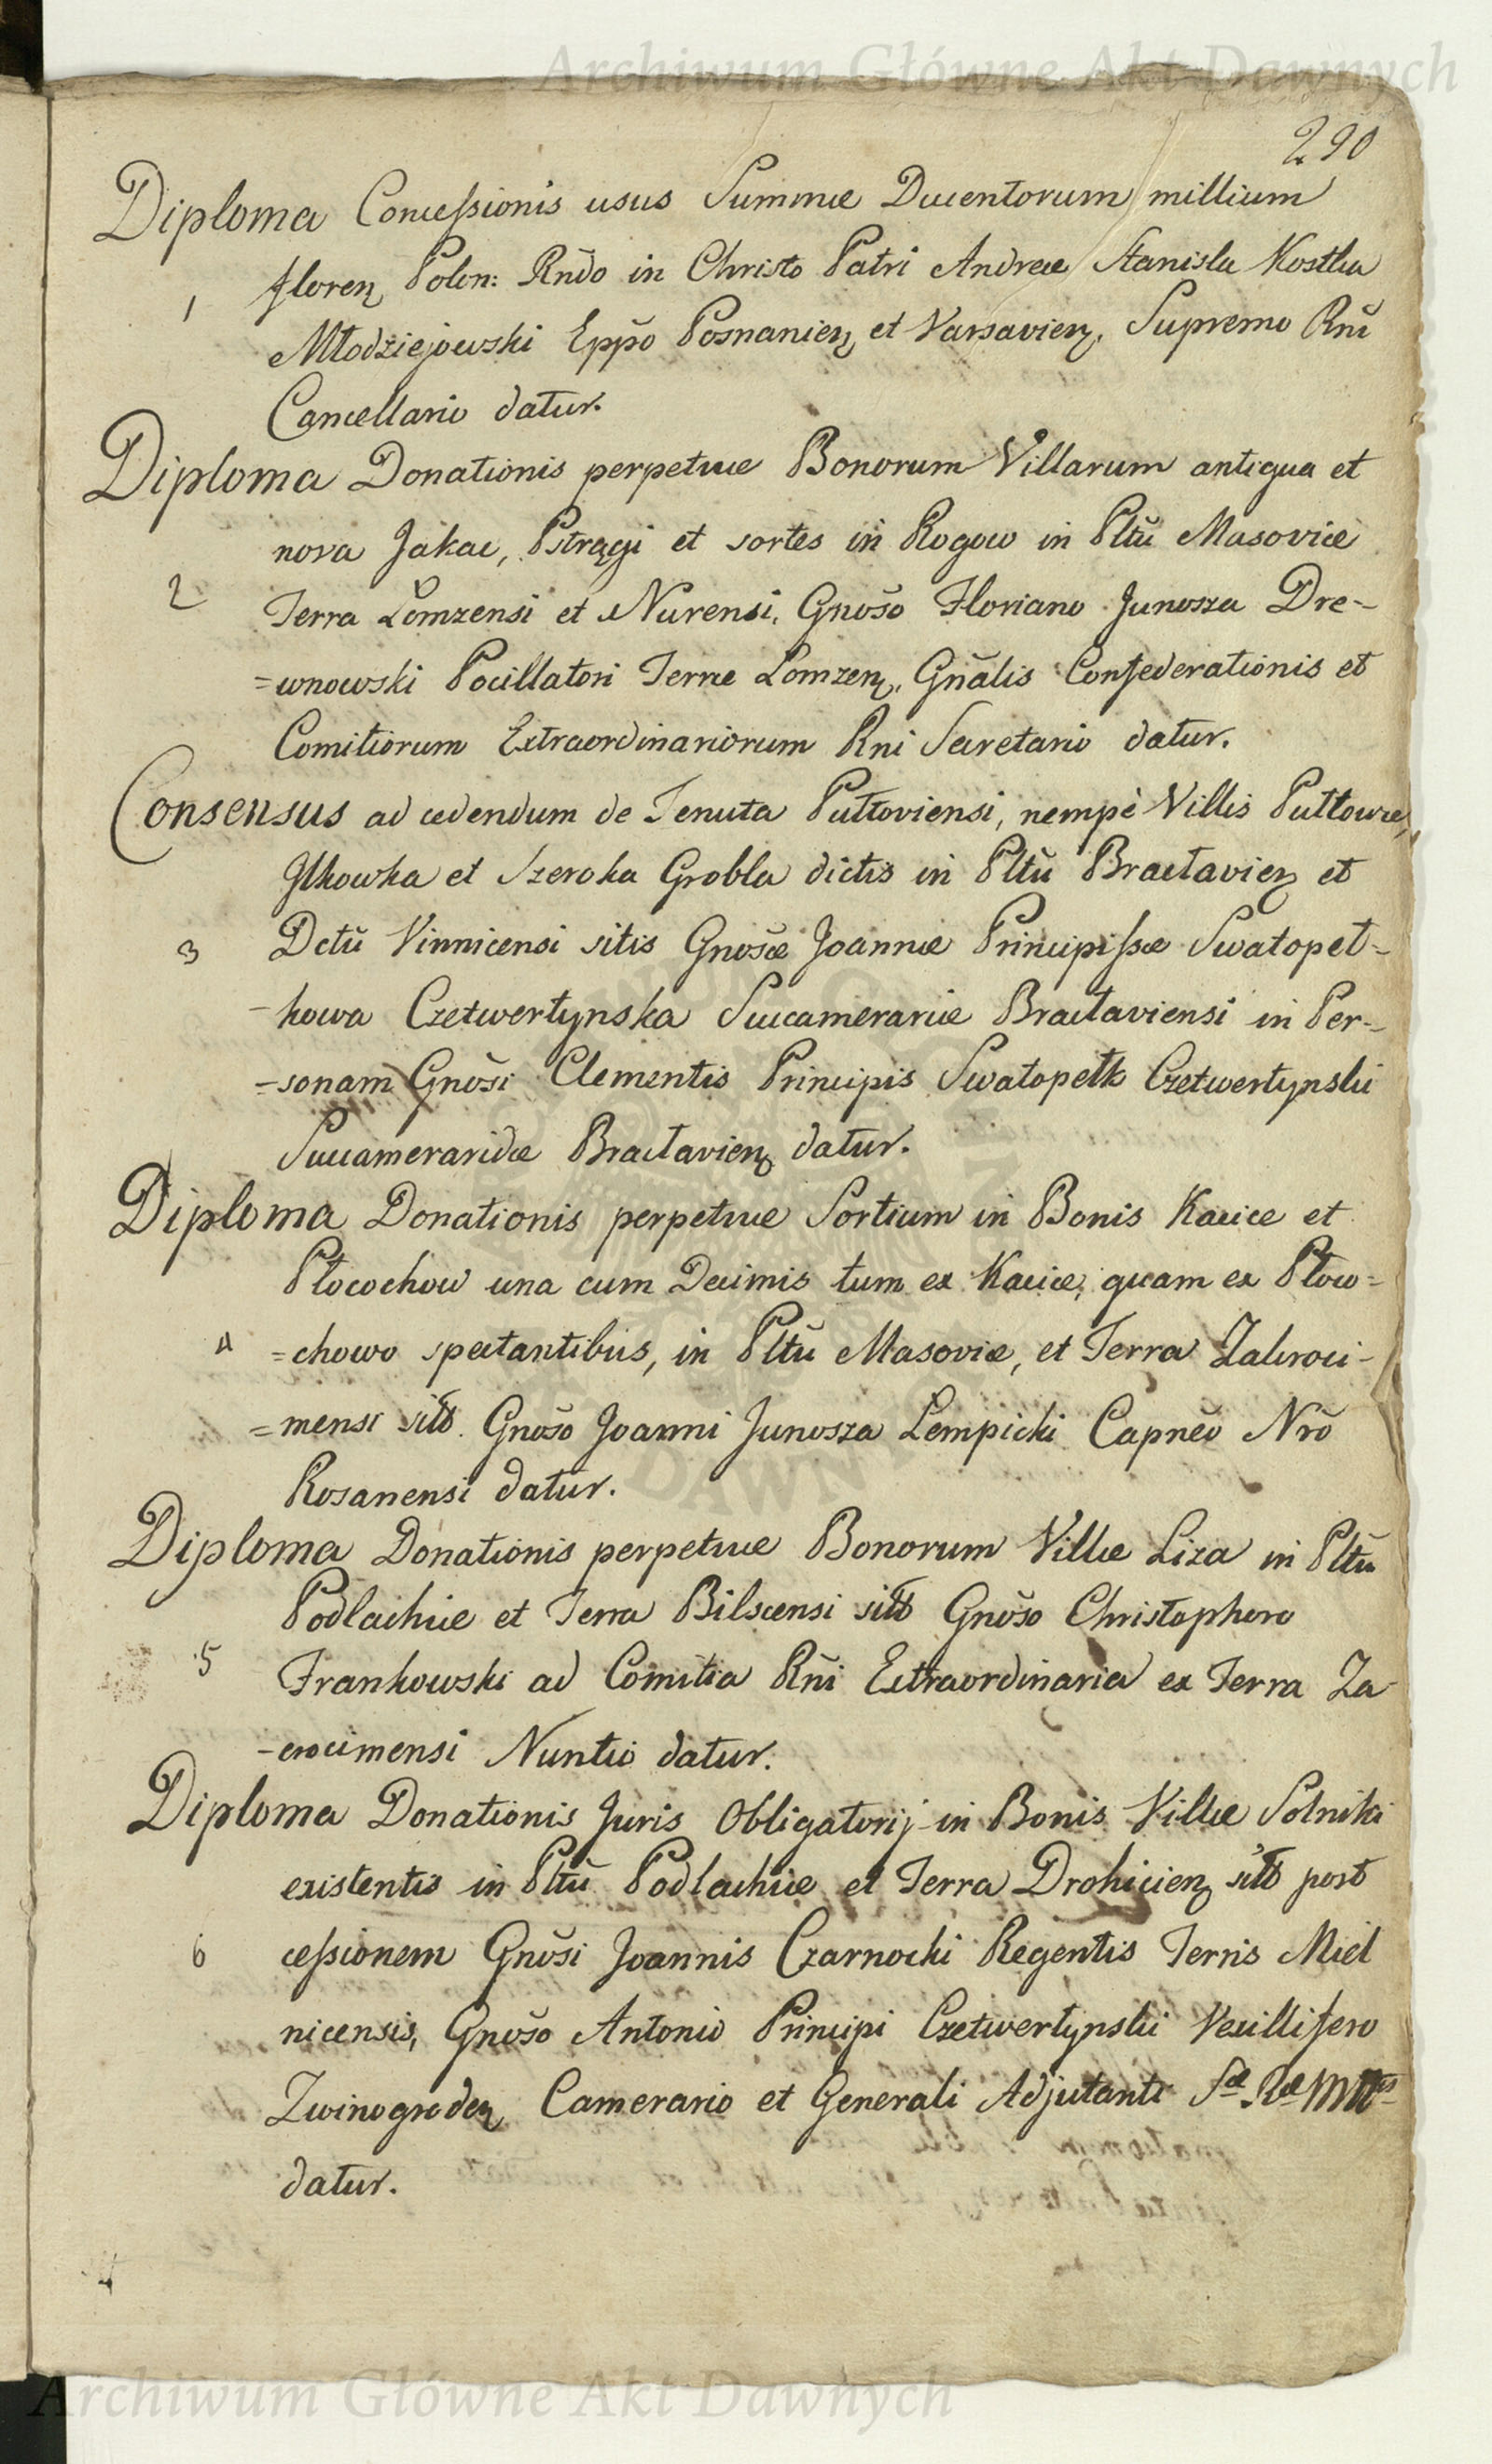 Archiwum Główne Akt Dawnych
290
Diploma Concessionis usus Summæ Ducentorum millium
floren Polon: Rndo in Christo Patri Andreæ Stanislæ Kostka
1
Młodziejowski Eppo Posnanien et Varsavien, Supremo Rni
Cancellario datur.
Diploma Donationis perpetuæ Bonorum Villarum antiqua et
nova Jakac, Pstrągi et sortes in Rogow in Pltu Masoviæ
2
Terra Lomzensi et Nurensi, Gnoso Floriano Junosza Dre-
=wnowski Pocillatori Terræ Lomzen, Gnalis Confederationis et
Comitiorum Extraordinariorum Rni Secretario datur.
Consensus ad cedendum de Tenuta Pułtoviensi, nempè Villis Pułtowce,
Ilkowka et Szeroka Grobla dictis in Pltu Braclavien et
3
Dctu Vinnicensi sitis Gnosæ Joannæ Principissæ Swatopeł-
-kowa Czetwertynska Succamerariæ Braclaviensi in Per-
=sonam Gnosi Clementis Principis Swatopełk Czetwertynski
Succameraridæ Braclavien datur.
Diploma Donationis perpetuæ Sortium in Bonis Kacice et
Płocochow una cum Decimis tum ex Kacice, quam ex Płoco=
4
=chowo spectantibus, in Pltu Masoviæ, et Terra Zakroci-
=mensi sitt. Gnoso Joanni Junosza Lempicki Capneo Nro
Rosanensi datur.
Diploma Donationis perpetuæ Bonorum Villæ Liza in Pltu
Podlachiæ et Terra Bilscensi sitt Gnoso Christophoro
5
Frankowski ad Comitia Rni Extraordinaria ex Terra Za
-crocimensi Nuntio datur.
Diploma Donationis Juris Obligatorij in Bonis Villæ Solniki
existentis in Pltu Podlachiæ et Terra Drohicien sitt post
6
cessionem Gnosi Joannis Czarnocki Regentis Terris Miel
nicensis, Gnoso Antonio Principi Czetwertynski Vexillifero
Zwinogroden Camerario et Generali Adjutanti Sæ Ræ Mttis
datur.
Archiwum Główne Akt Dawnych